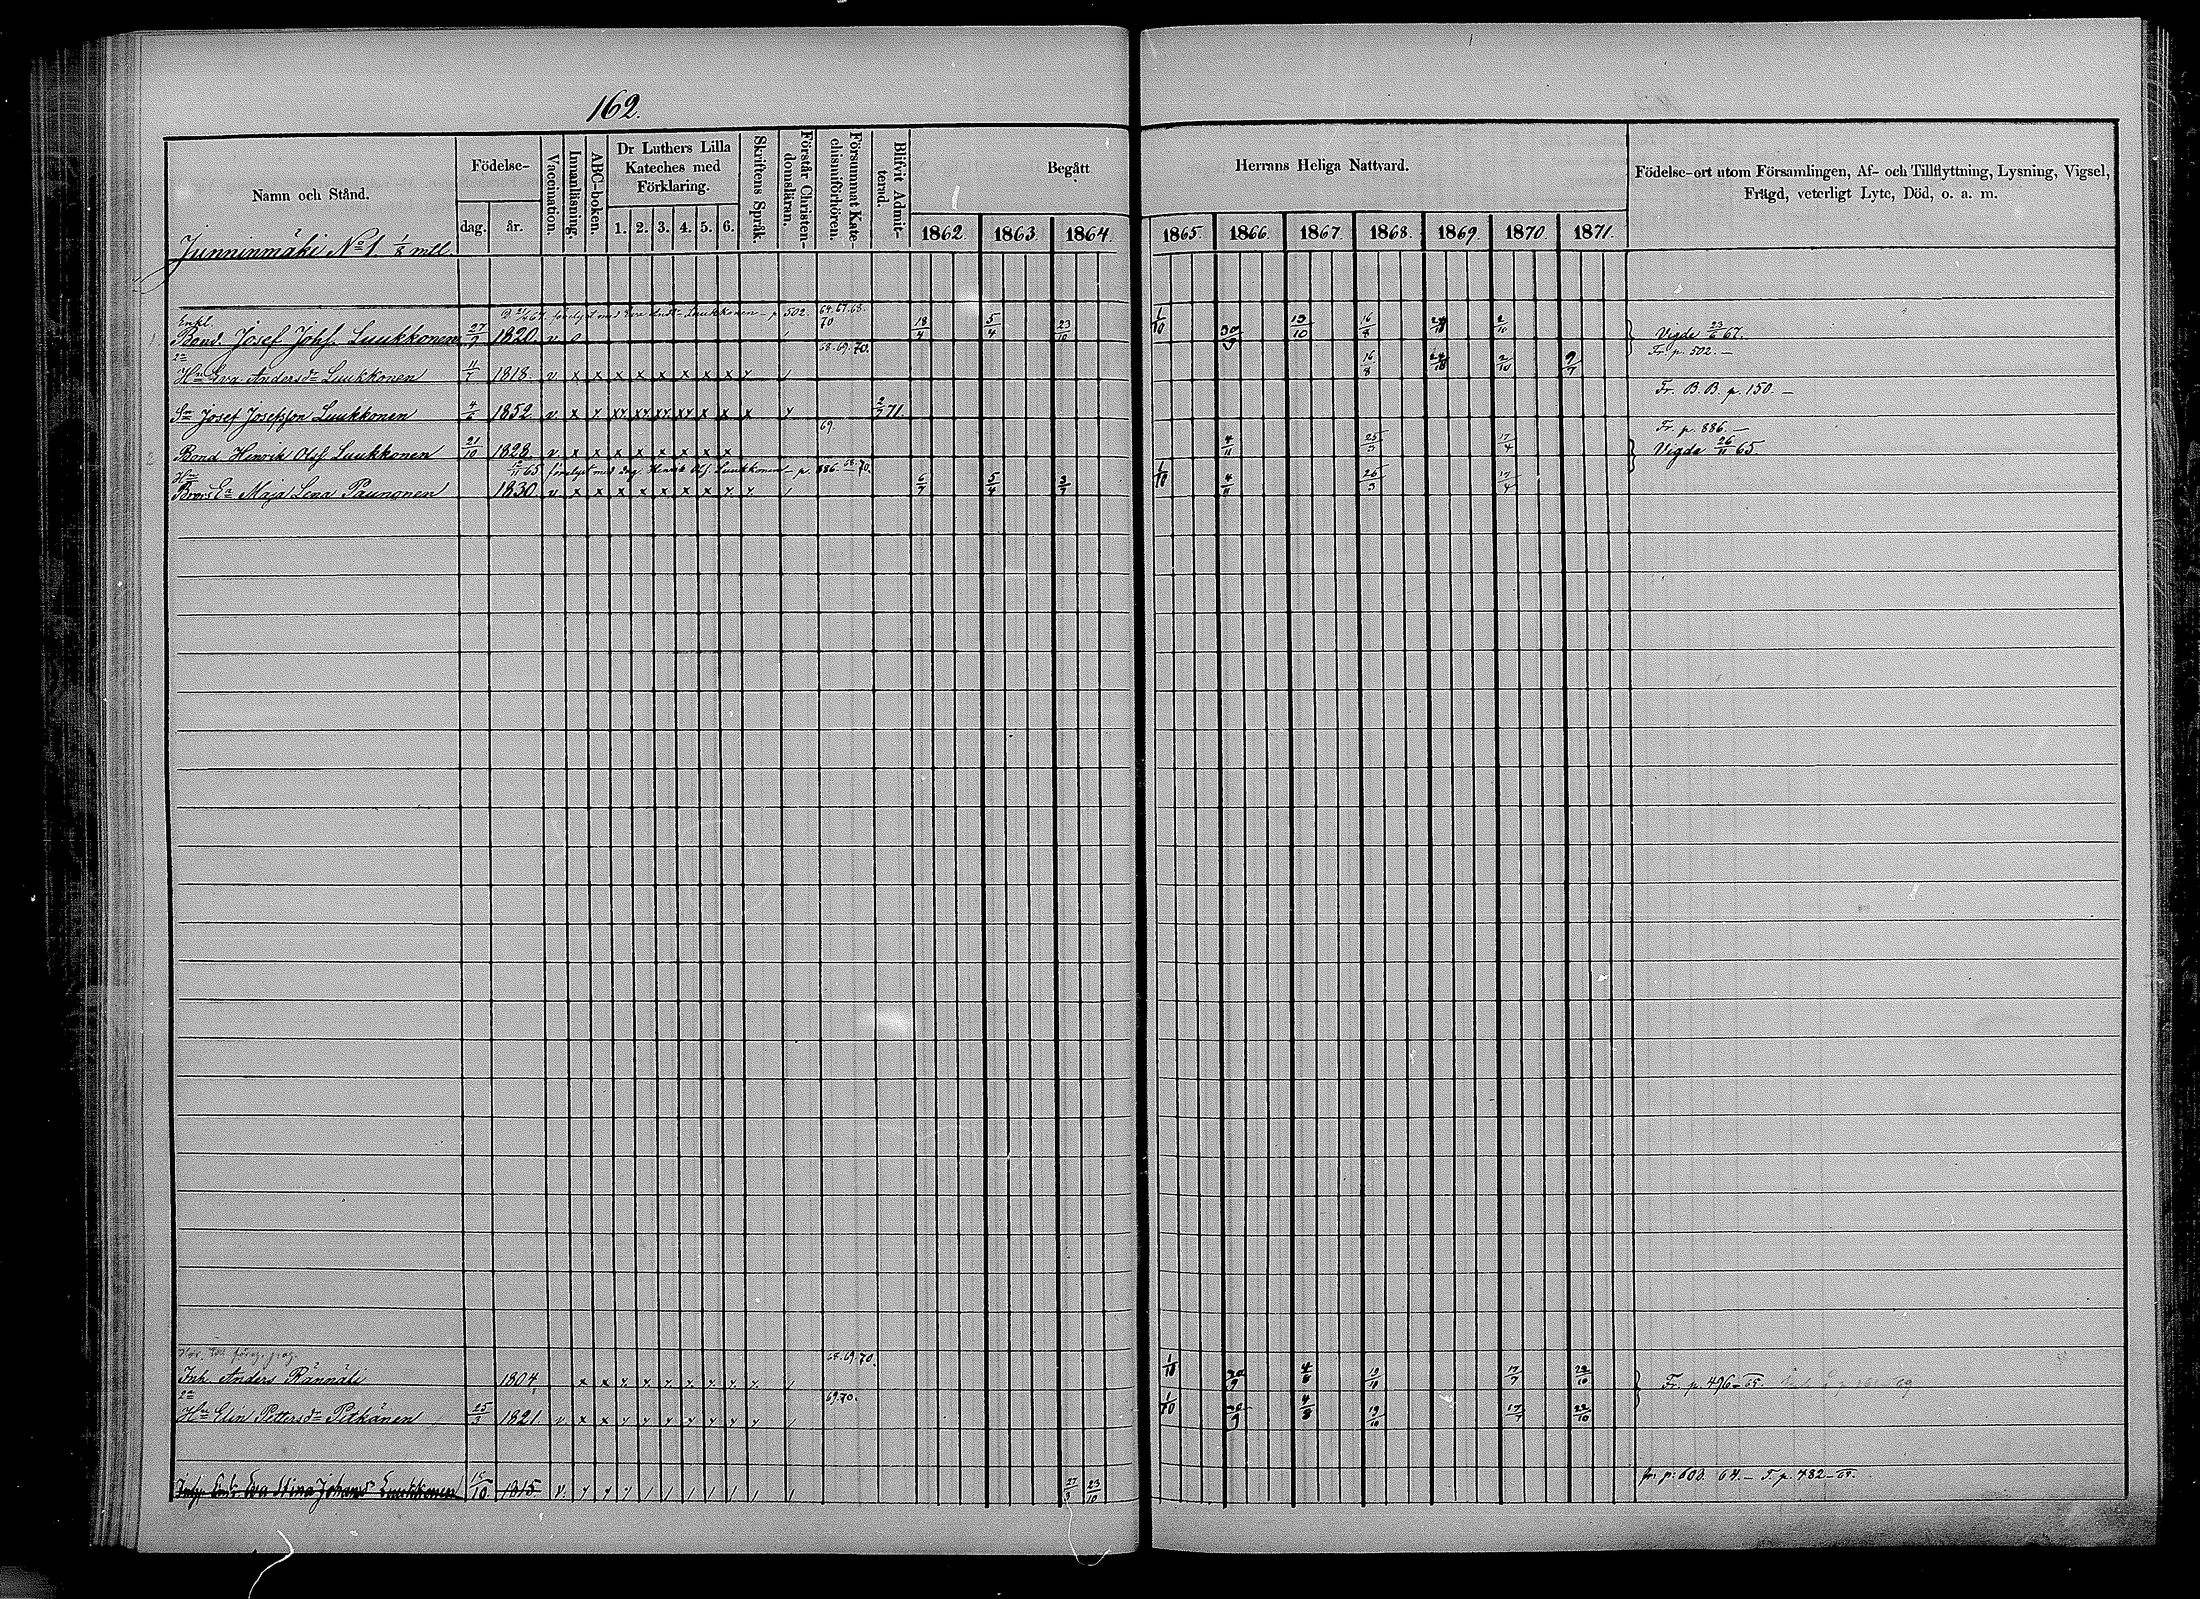 162.
Namn och Stånd. Födelse- dag. år. Vaccination. Innanläsning. ABC-boken. Dr Luthers Lilla Kateches med Förklaring. 1. 2. 3. 4. 5. 6. Skriftens Språk. Förstår Christendomsläran. Försummat Katechismiförhören. Blifvit Admitterad. Begått Herrans Heliga Nattvard. 1862. 1863. 1864. 1865. 1866. 1867. 1868. 1869. 1870. 1871. Födelse-ort utom Församlingen, Af- och Tillflyttning, Lysning, Vigsel, Frägd, veterligt Lyte, Död, o. a. m.
Junninmäki No 1 1/8 mtl.
Enkl. förelyst med Eva Andsdr Luukkonen – p 502. 64. 67. 68. 70
Bond. Josef Johss. Luukkonen 27/9 1820. v o 18/4 5/4 23/10 1/10 30/9 13/10 16/8 2/10 Vigde 23/6 67.
2a 68. 69. 70. Fr. p. 502. –
Hu Eva Andersdr Luukkonen 1818. v x x x x x x x x 16/8 2/10 9/7
Fr. B. B. p. 150. –
Sn Josef Josefsson Luukkonen 4/6 1852 v x 2/7 71.
69. Fr. p. 886. –
Bond Henrik Olss. Luukkonen 21/10 1823 v x x x x x x x x 4/11 25/3 17/4 Vigda 26/11 65
Hu 5/11 65 förelyst med drg. Henrik Olss. Luukkonen – p. 886. 68. 70.
Brors Ea Maja Lena Paunonen 1830 v x x x x x x x 6/7 5/4 3/7 1/10 4/11 25/3 17/4
68. 69. 70.
Inh. Anders Rännäli 1804 x x 1/10 30/9 4/8 19/10 17/7 22/10 Fr. p. 496–65.
2a 69. 70.
Hu Elin Pettersdr Pitkänen 25/3 1821 v x x 1/10 30/9 4/8 19/10 17/7 22/10
Eva Stina Johansdr Luukkonen 15/10 1815. v. 27/3 23/10 fr. p. 608. 64. – T. p. 482–65.